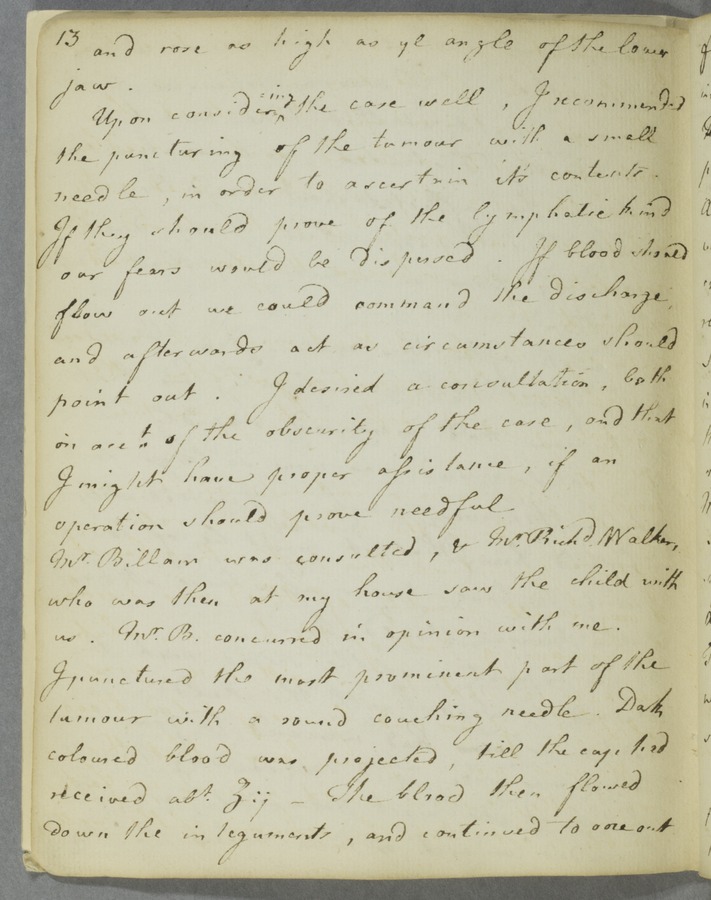 13 and rose as high as ye angle of the lower
jaw.
Upon considering the case well, I recommended
the puncturing of the tumour with a small
needle, in order to ascertain its contents.
If they should prove of the lymphatic kind
our fears would be dispersed. If blood should
flow out we could command the discharge,
and afterwards act as circumstances should
point out. I desired a consultation, both
on acct. of the obscurity of the case, and that
I might have proper assistance, if an
operation should prove needful
Mr. Billam was consulted, & Mr. Richd Walker,
who was then at my house saw the child with
us. Mr. B. concurred in opinion with me.
I punctured the most prominent part of the
tumour with a round couching needle. Dark
coloured blood was projected, till the cup had
received abt. ʒij – The blood then flowed
down the integuments, and continued to ooze out